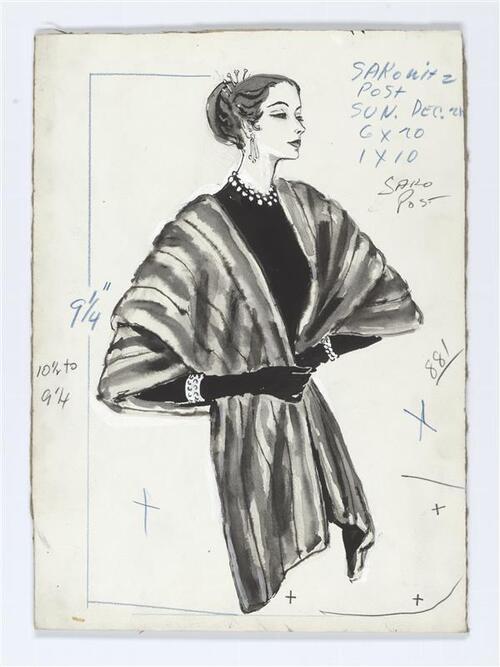 SAKOWITZ
POST
SUN. DEC. 21
6 X 20
1 X 10
SAKO
POST
9 1/4"
10 1/4 to
9 1/4
881